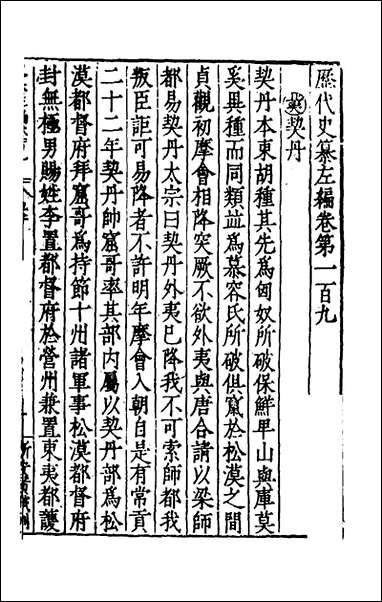 歷代史纂左編卷第一百九
夷契丹
契丹本東胡種其先爲匈奴所破保鮮卑山與庫莫
奚異種而同類並爲慕容氏所破俱竄於松漠之間
貞觀初摩會相降突厥不欲外夷與唐合請以梁師
都易契丹太宗曰契丹外夷已降我不可索師都我
叛臣詎可易降者不許明年摩會入朝自是有常貢
二十二年契丹帥窟哥率其部内屬以契丹部爲松
漠都督府拜窟哥爲持節十州諸軍事松漠都督府
封無極男賜姓李置都督府於營州兼置東夷都護